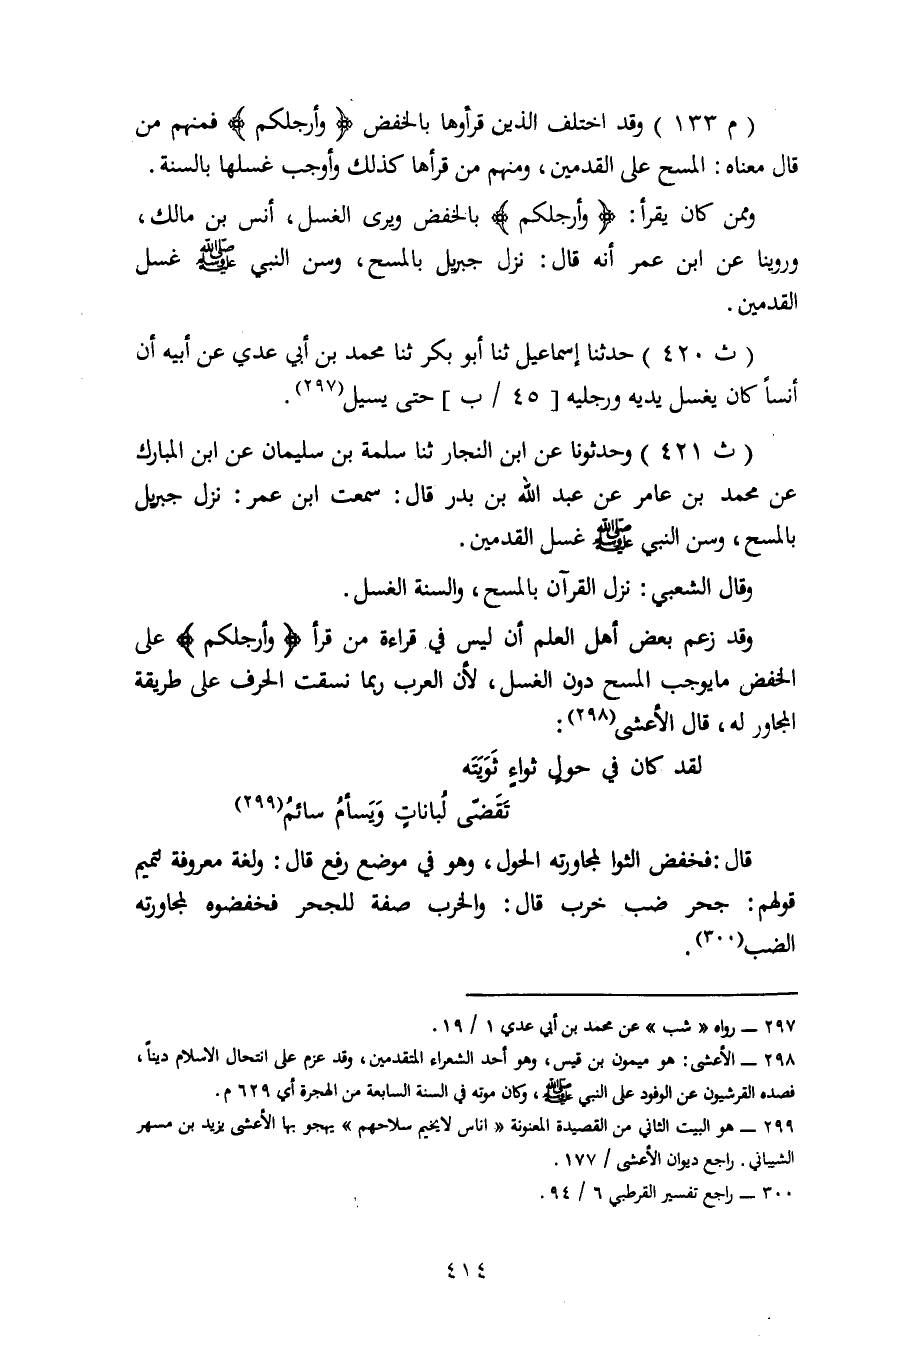 ( م ١٣٣ ) وقد اختلف الذين قرأوها بالخفض ﴿ وأرجلكم ﴾ فمنهم من
قال معناه : المسح على القدمين ، ومنهم من قرأها كذلك وأوجب غسلها بالسنة .
وممن كان يقرأ : ﴿ وأرجلكم ﴾ بالخفض ويرى الغسل ، أنس بن مالك ،
وروينا عن ابن عمر أنه قال : نزل جبريل بالمسح ، وسن النبي ﷺ غسل
القدمين .
( ث ٤٢٠ ) حدثنا إسماعيل ثنا أبو بكر ثنا محمد بن أبي عدي عن أبيه أن
أنساً كان يغسل يديه ورجليه [ ٤٥ / ب ] حتى يسيل(٢٩٧) .
( ث ٤٢١ ) وحدثونا عن ابن النجار ثنا سلمة بن سليمان عن ابن المبارك
عن محمد بن عامر عن عبد الله بن بدر قال : سمعت ابن عمر : نزل جبريل
بالمسح ، وسن النبي ﷺ غسل القدمين .
وقال الشعبي : نزل القرآن بالمسح ، والسنة الغسل .
وقد زعم بعض أهل العلم أن ليس في قراءة من قرأ ﴿ وأرجلكم ﴾ على
الخفض مايوجب المسح دون الغسل ، لأن العرب ربما نسقت الحرف على طريقة
المجاور له ، قال الأعشى(٢٩٨) :
لقد كان في حولٍ ثواءٍ ثَوَيَته
تَقَضّى لُباناتٍ وَيَسأمُ سائمُ(٢٩٩)
قال : فخفض الثوا لمجاورته الحول ، وهو في موضع رفع قال : ولغة معروفة لتميم
قولهم : جحر ضب خرب قال : والخرب صفة للجحر فخفضوه لمجاورته
الضب(٣٠٠) .
٢٩٧ ــ رواه « شب » عن محمد بن أبي عدي ١ / ١٩ .
٢٩٨ ــ الأعشى : هو ميمون بن قيس ، وهو أحد الشعراء المتقدمين ، وقد عزم على انتحال الاسلام ديناً ،
فصده القرشيون عن الوفود على النبي ﷺ ، وكان موته في السنة السابعة من الهجرة أي ٦٢٩ م .
٢٩٩ ــ هو البيت الثاني من القصيدة المعنونة « اناس لايخيم سلاحهم » يهجو بها الأعشى يزيد بن مسهر
الشيباني . راجع ديوان الأعشى / ١٧٧ .
٣٠٠ ــ راجع تفسير القرطبي ٦ / ٩٤ .
٤١٤